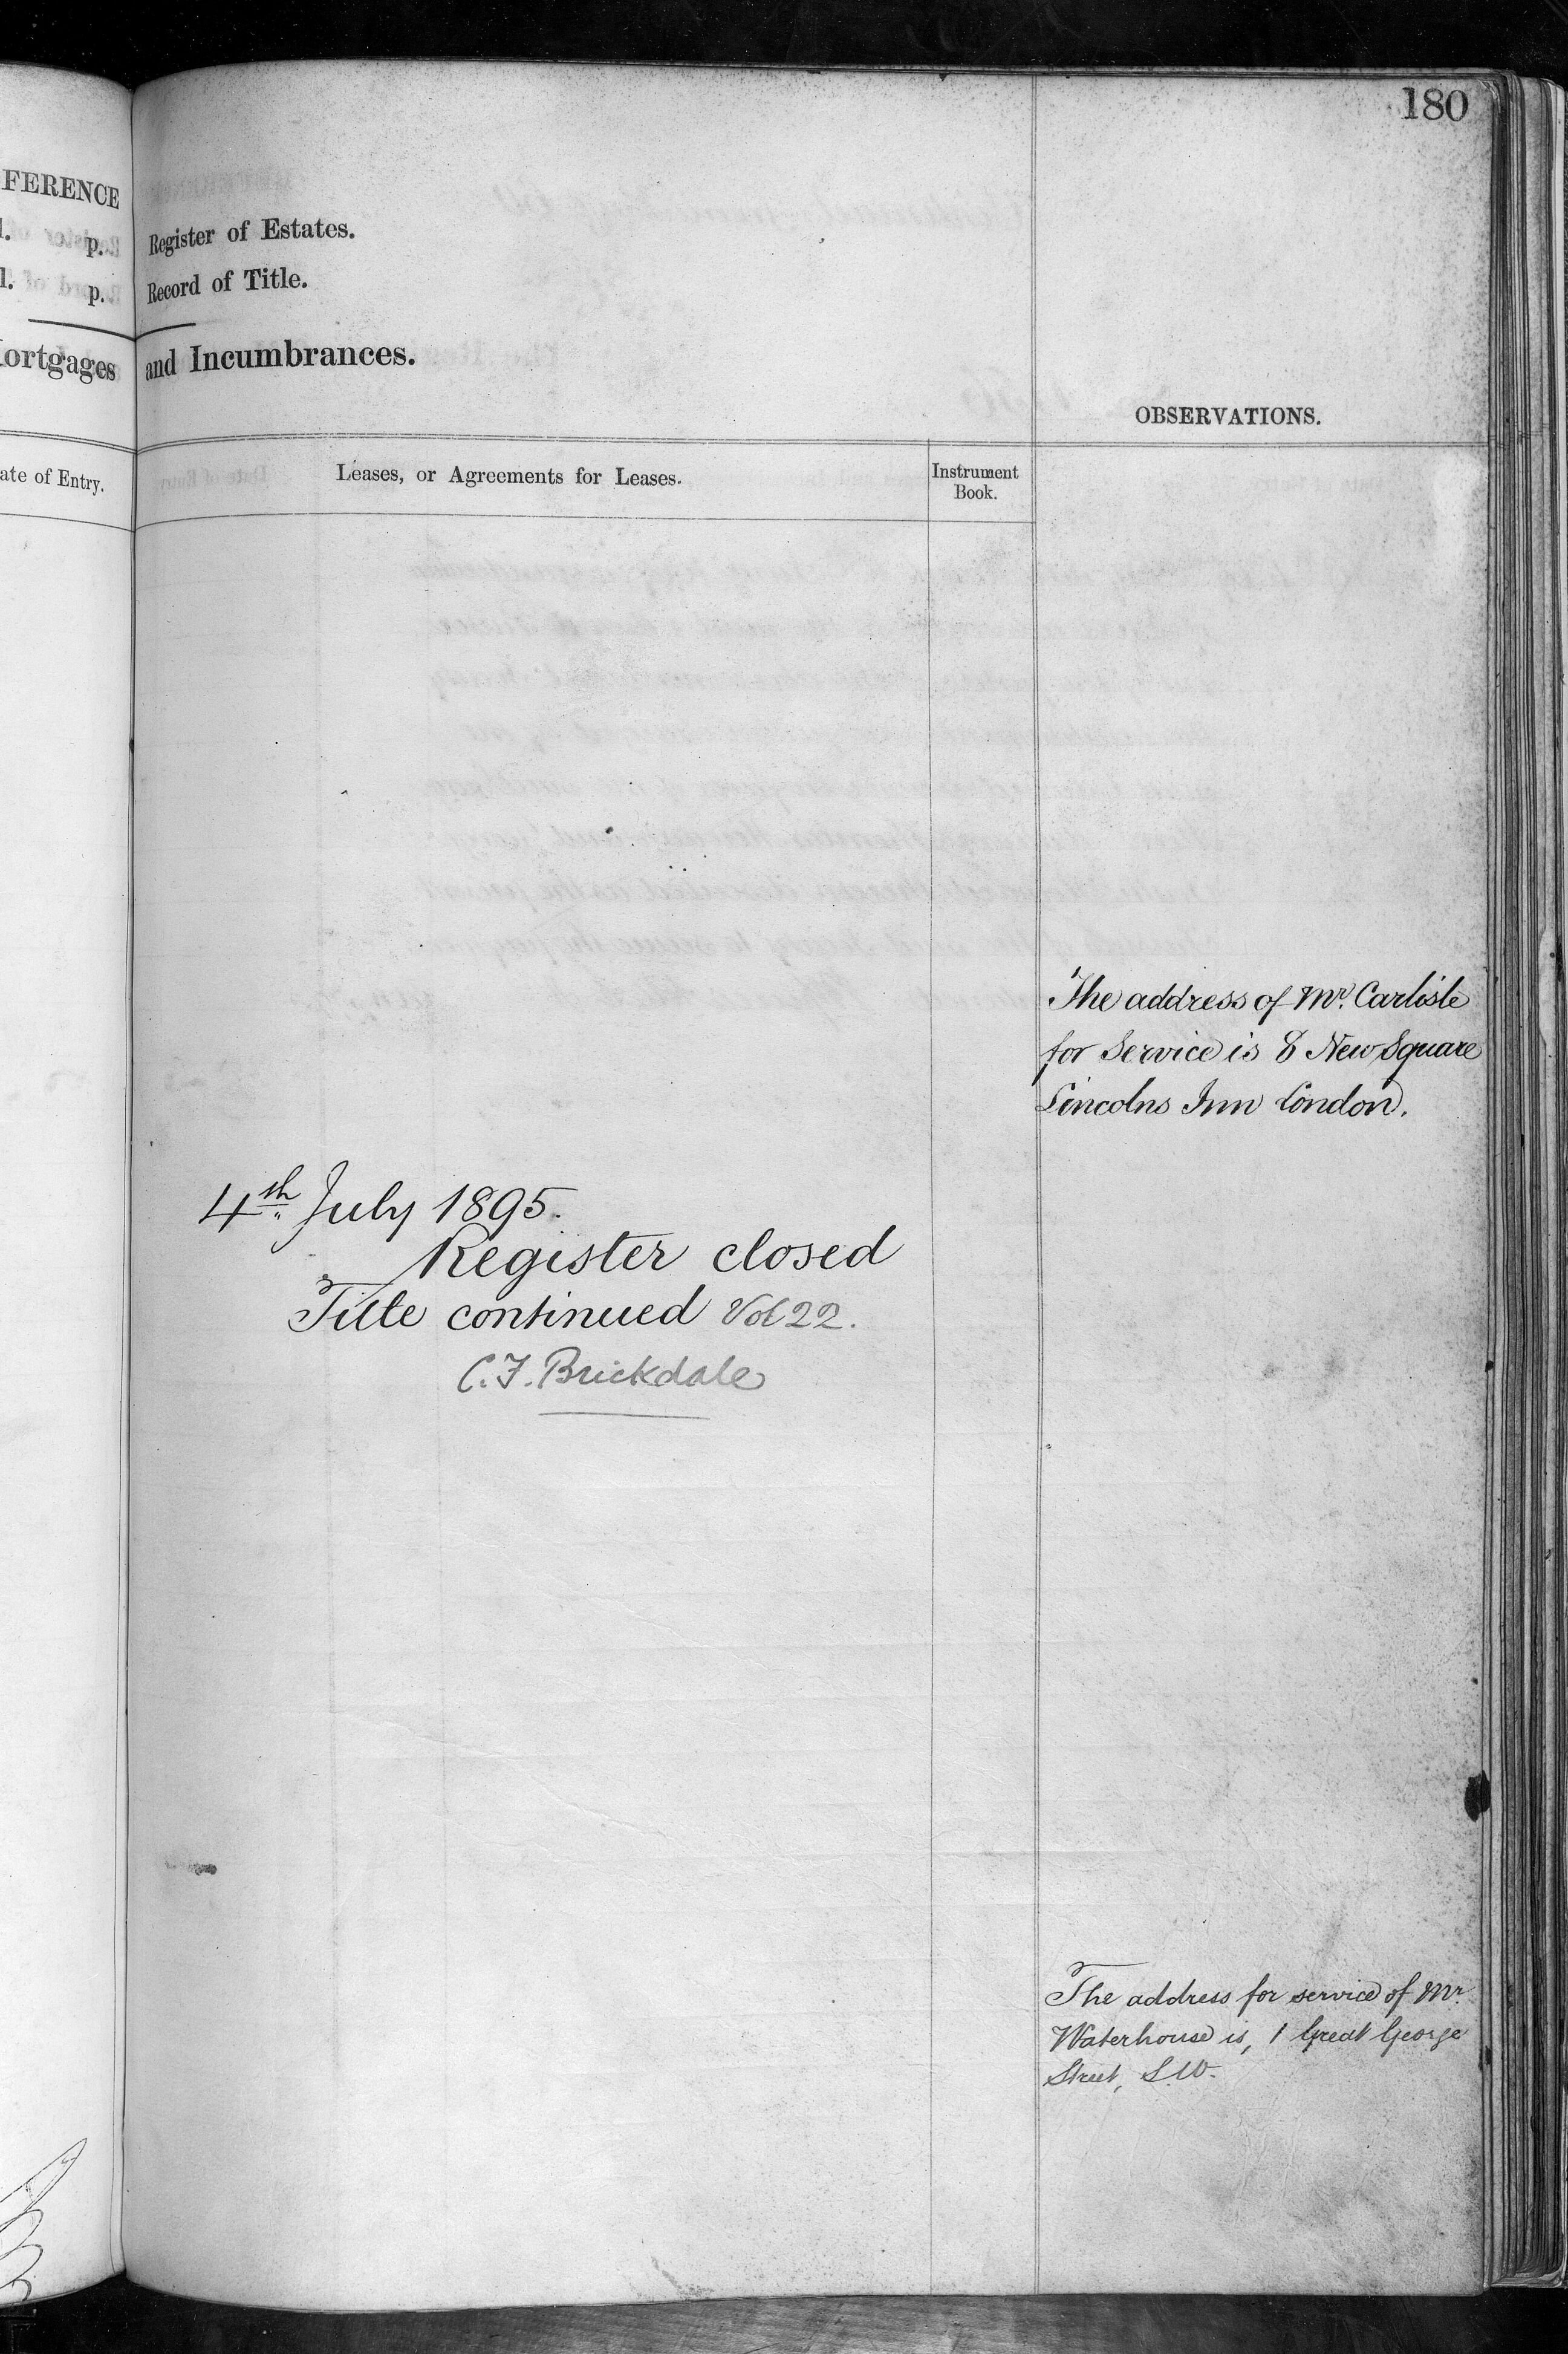 180
FERENCE
p. Register of Estates.
p. Record of Title.
ortgages and Incumbrances.
OBSERVATIONS.
ate of Entry.
Leases, or Agreements for Leases.
Instrument
Book.
The address of Mr. Carlisle
for Service is 8 New Square
Lincolns Inn London.
4th July 1895.
Register closed
Title continued Vol 22.
C.F. Brickdale
The address for service of Mr.
Waterhouse is, 1 Great George
Street, S.W.